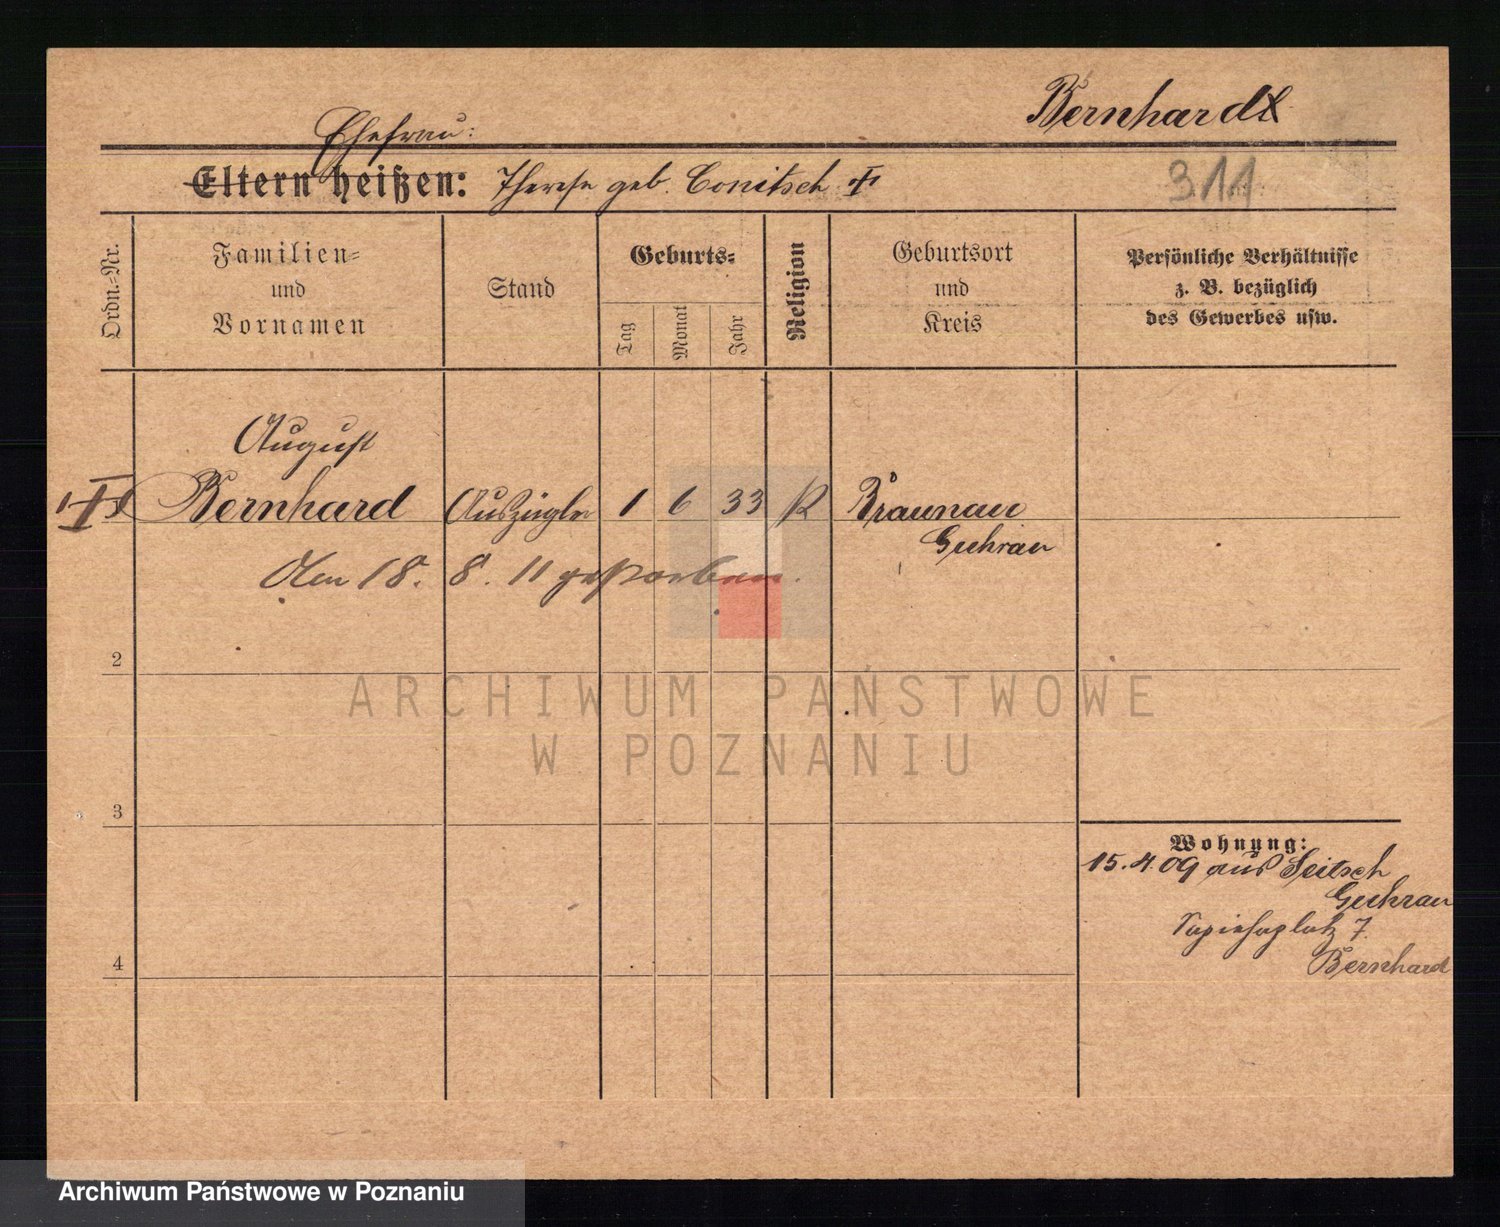 Bernhardt
Ehefrau:
Eltern heißen: Therese geb. Conitsch †
311
Ordn.-Nr.
Familien-
und
Vornamen
Stand
Geburts-
Tag
Monat
Jahr
Religion
Geburtsort
und
Kreis
Persönliche Verhältnisse
z. B. bezüglich
des Gewerbes usw.
August
Bernhard Auszügler 1 6 33 K Braunau
Guhrau
Den 18. 8. 11 gestorben.
2
3
4
Wohnung:
15.4.09 aus Seitsch
Guhrau
Sapiehaplatz 7.
Bernhard
ARCHIWUM PAŃSTWOWE
W POZNANIU
Archiwum Państwowe w Poznaniu